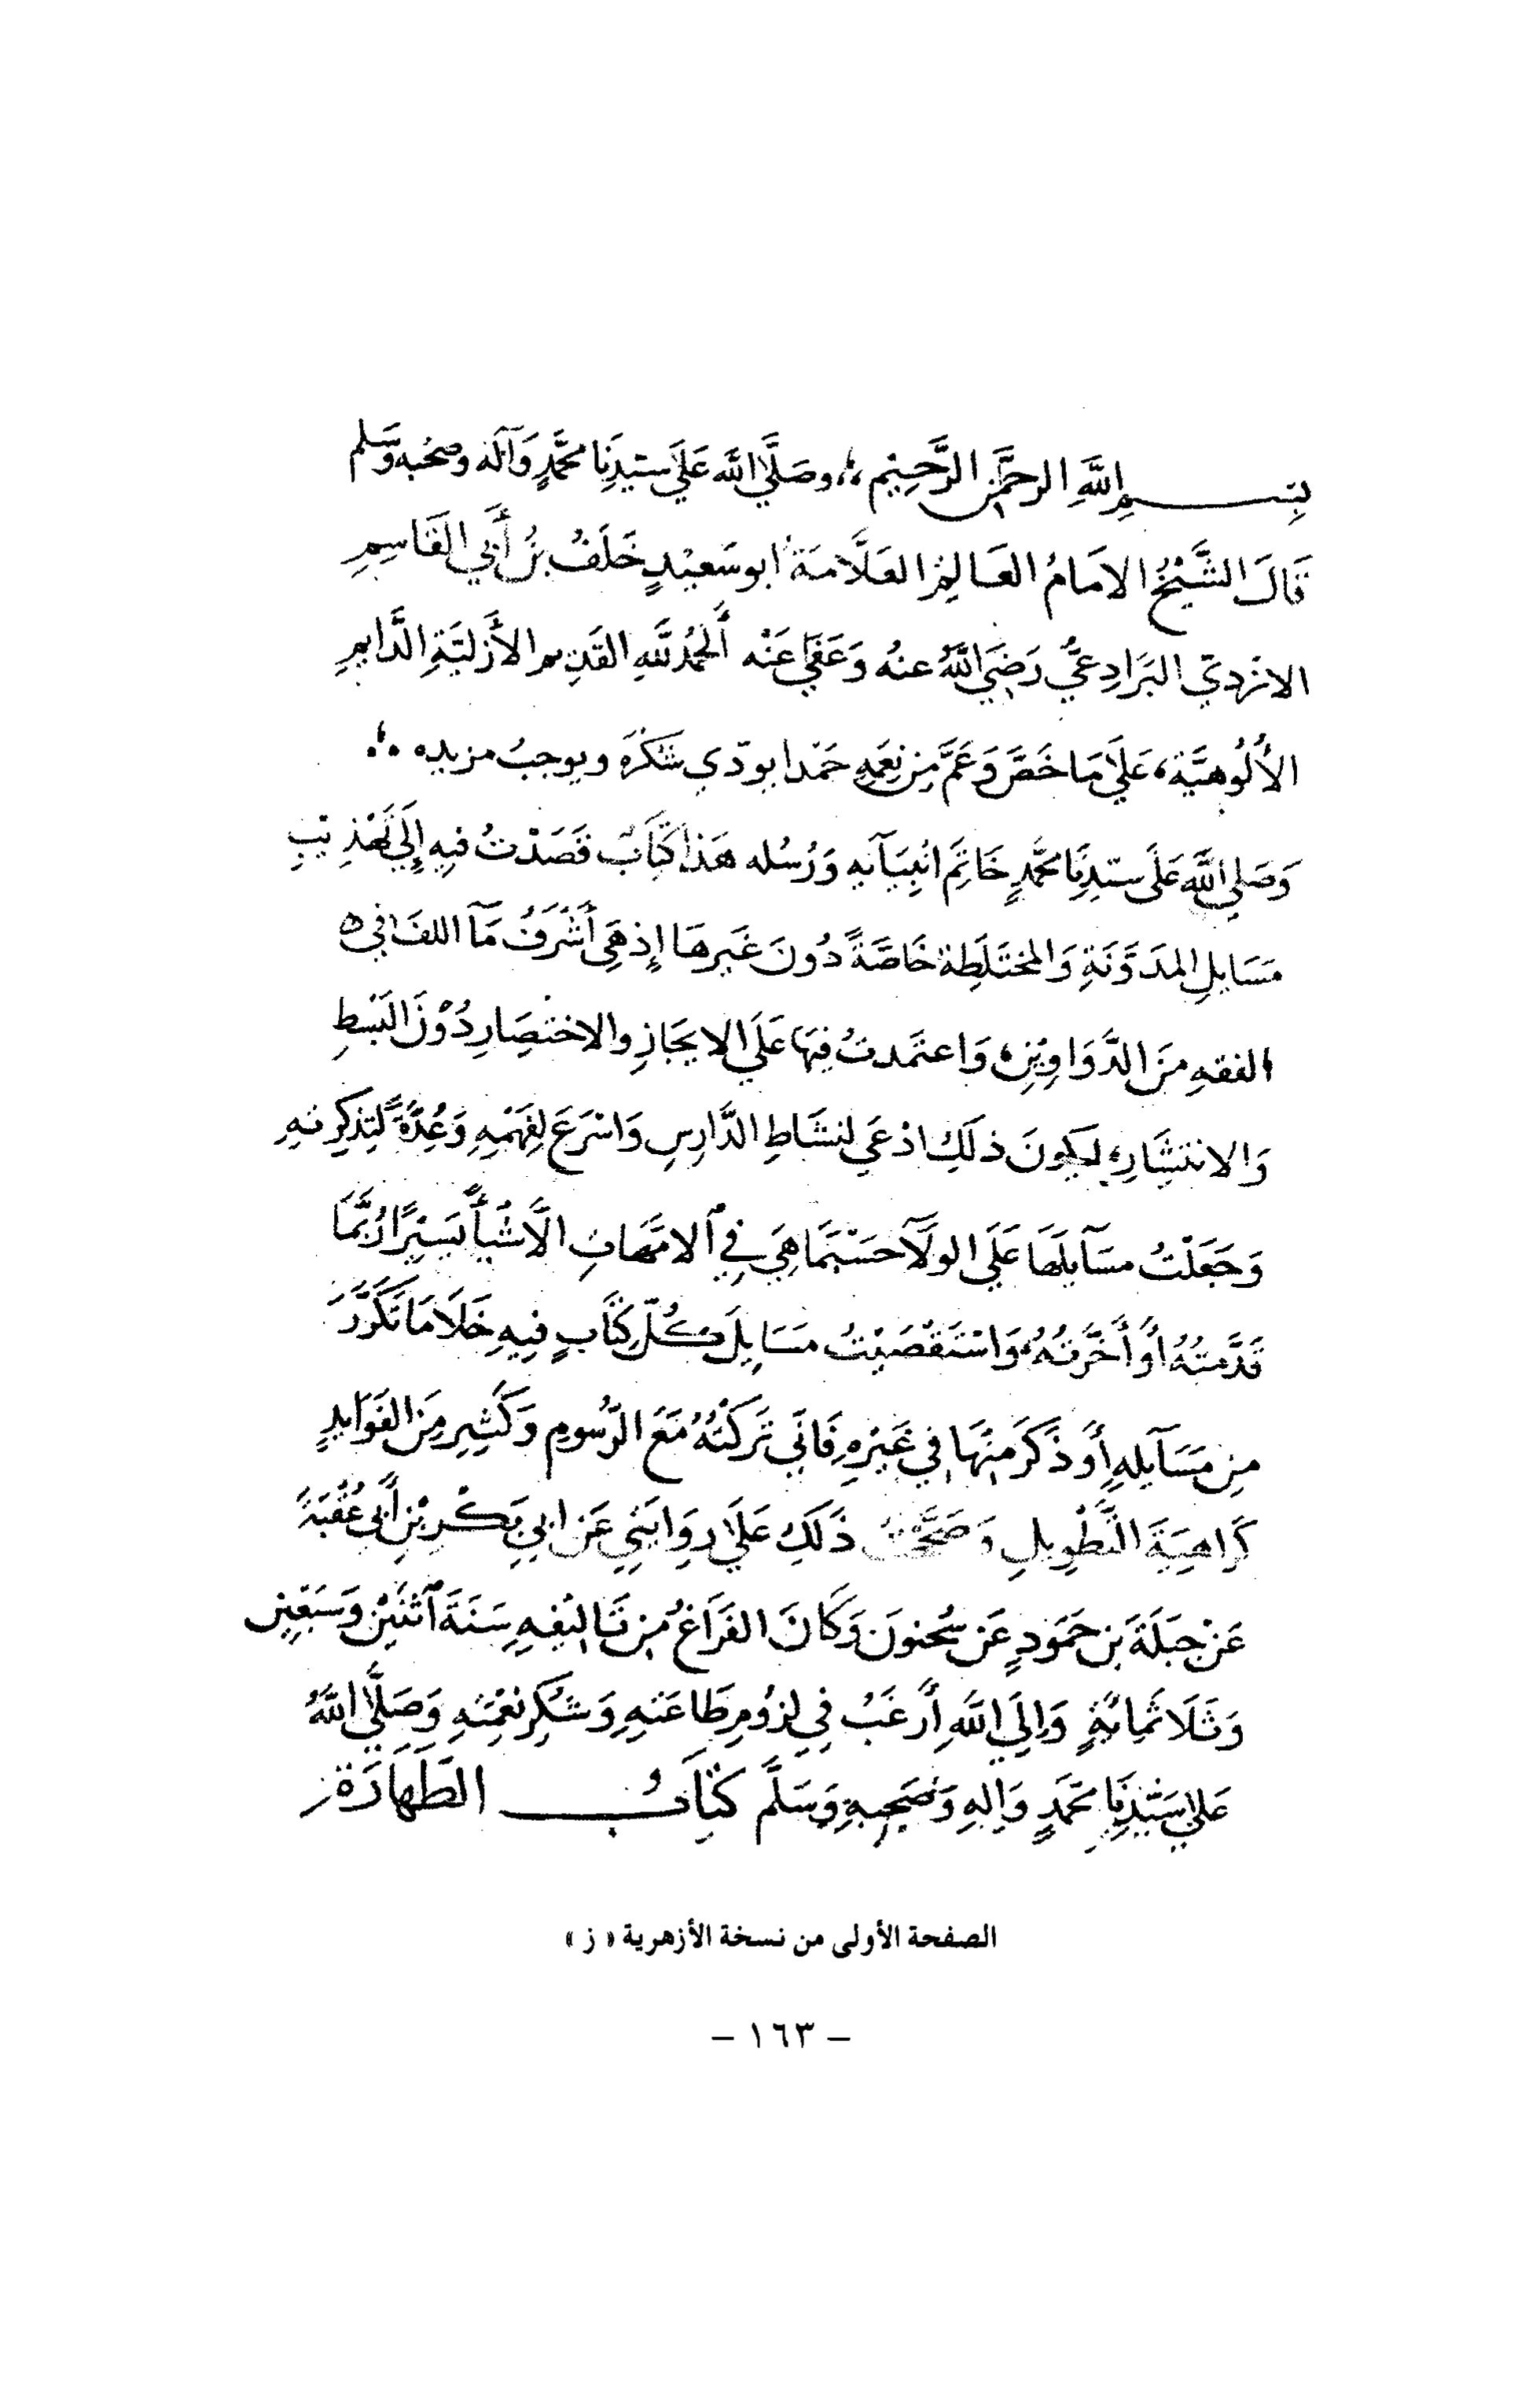 بِسْمِ اللَّهِ الرحمَنِ الرَّحِيْمِ ؞ وصَلَّى اللَّه عَلَي سيّدِنَا محمَّدٍ وَآلَه وصَحْبه وَسَّلم
قَالَ الشَّيْخُ الامَامُ العَالِمُ العَلَّامَةُ ابو سَعيْدٍ خَلَفُ بنُ أَبي القَاسِمِ
الازْدِيّ البَرَادِعيُّ رَضِيَ اللَّهُ عنهُ وَعَفَي عَنْه أَلحمْدُ للَّهِ القَدِيم الأَزَليَّةِ الدَّايمِ
الأُلُوهيَّة، عَلَي مَا خَصَّ وَعَمَّ مِن نِعَمِهِ حَمْدا يودّي شكْرَهَ ويوجبُ مزيده ؞
وَصَلي اللَّه عَلَى سيّدِنَا محَمَّدٍ خَاتِمَ انْبِيَآيه وَرُسُله هَذا كِتَابٌ قَصَدْتُ فيهِ إِلَي تَهْذِيْبِ
مَسَايلِ المدَوَّنَةِ وَالمختَلَطِة خَاصَّةً دُونَ غَيرهَا إِذ هَي أَشْرَفُ مَآ اللفَ في ه
الفقهِ مَن الدَّوَاوِيْنِ، وَاعتَمدتُ فِيهَا عَلَي الايجَازِ والاختِصَارِ دُوْنَ البَسْطِ
وَالانتشَارِ، ليكونَ ذلَكِ ادْعَي لنشَاطِ الدَّارِسِ وَاسْرَعَ لِفَهْمِهِ وَعُدَّةً لتِذكِرتهِ
وَجَعَلْتُ مسَآيلَهَا عَلَي الولَآ حسَبَما هِيَ فِي الامَّهَاتِ الَّا شَيأً يَسيْرًا رُبَّمَا
قَدَّمتُهُ أوْ أَخَّرتُهُ، وَاسْتَقْصَيْتُ مسَايِلَ كُلّ كِتَابٍ فيِهِ خَلَا مَا تَكَرَّرَ
مِن مَسَآيلِهِ أَوْ ذَكَرَ منِهَا في غَيْرِهِ فَانّي تَركْتُهُ مَعَ الرّسومِ وَكَثِيرٍ مِنَ الفَوَايدِ
كَرَاهيَةَ التَّطْويلِ وَصَحَّحْتُ ذَلَكِ عَلَي رِوَايَتي عَن ابي بَكْرِ بْنِ أَبي عُقْبَةَ
عَنْ جبَلَةَ بن حَمَودٍ عَن سُحنونَ وَكَانَ الفَرَاغُ مِن تَاليْفِهِ سَنَةَ اثْنَيْن وَسَبْعيْن
وَثَلَاثمَائةٍ وَالِي اللَّهِ أَرغَبُ فِي لِزُومِ طَاعَتهِ وَشكْرِ نعْمَتهِ وَصَلَّي اللَّهُ
عَلي سَيّدِنَا محَمَدٍ وَالِهِ وَصَحِبهِ وَسَلَّم كِتَابُ الطَّهَارَة
الصفحة الأولى من نسخة الأزهرية « ز »
– ١٦٣ –